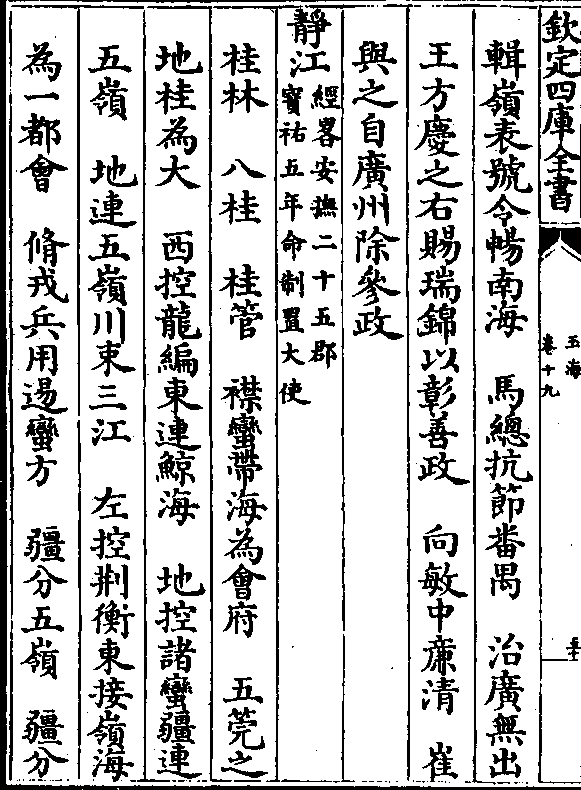 欽定四庫全書
玉海
卷十九
輯嶺表號令暢南海　馬總抗節番禺　治廣無出
王方慶之右賜瑞錦以彰善政　向敏中㢘清　崔
與之自廣州除參政
靜江經畧安撫二十五郡
寶祐五年命制置大使
桂林　八桂　桂管　襟蠻帶海為會府　五筦之
地桂為大　西控龍編東連鯨海　地控諸蠻疆連
五嶺　地連五嶺川束三江　左控荆衡東接嶺海
為一都會　脩戎兵用逷蠻方　疆分五嶺　疆分